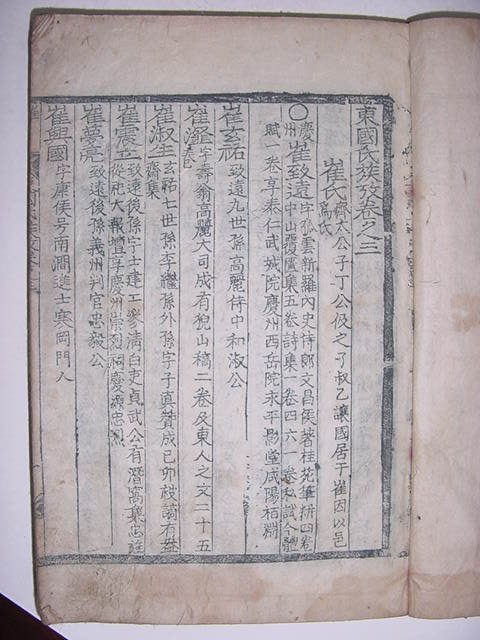 東國氏族攷卷之三
崔氏 齊太公子丁公伋之子叔乙讓國居于崔因以邑
爲氏
○慶州 崔致遠 字孤雲新羅內史侍郎文昌侯著桂苑筆耕四卷
中山覆簣集五卷詩集一卷四六一卷私試今體
賦一卷享泰仁武城院慶州西岳院永平影堂咸陽栢淵
崔玄祐 致遠九世孫高麗侍中和淑公
崔瀣 字壽翁高麗大司成有猊山稿二卷及東人之文二十五
卷
崔淑生 玄祐七世孫李繼孫外孫字子眞贊成己卯被謫有盎
齋集
崔震立 致遠後孫字士建工參淸白吏貞武公有潛窩集忠註
從祀大報壇享慶州崇烈祠慶源忠烈
崔夢亮 致遠後孫義州判官忠毅公
崔興國 字康侯号南澗進士寒岡門人